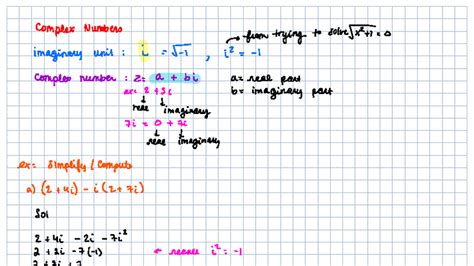 Complex Numbers
from trying to solve √x²+1 = 0
imaginary unit : i = √-1 , i² = -1
Complex number : z = a + bi a = real part
ex: 2 + 3i b = imaginary part
real imaginary
7i = 0 + 7i
real imaginary
ex: Simplify / Compute
a) (2 + 4i) - i (2 + 7i)
Sol
2 + 4i - 2i - 7i²
2 + 2i - 7(-1) recall i² = -1
2 + 2i + 7